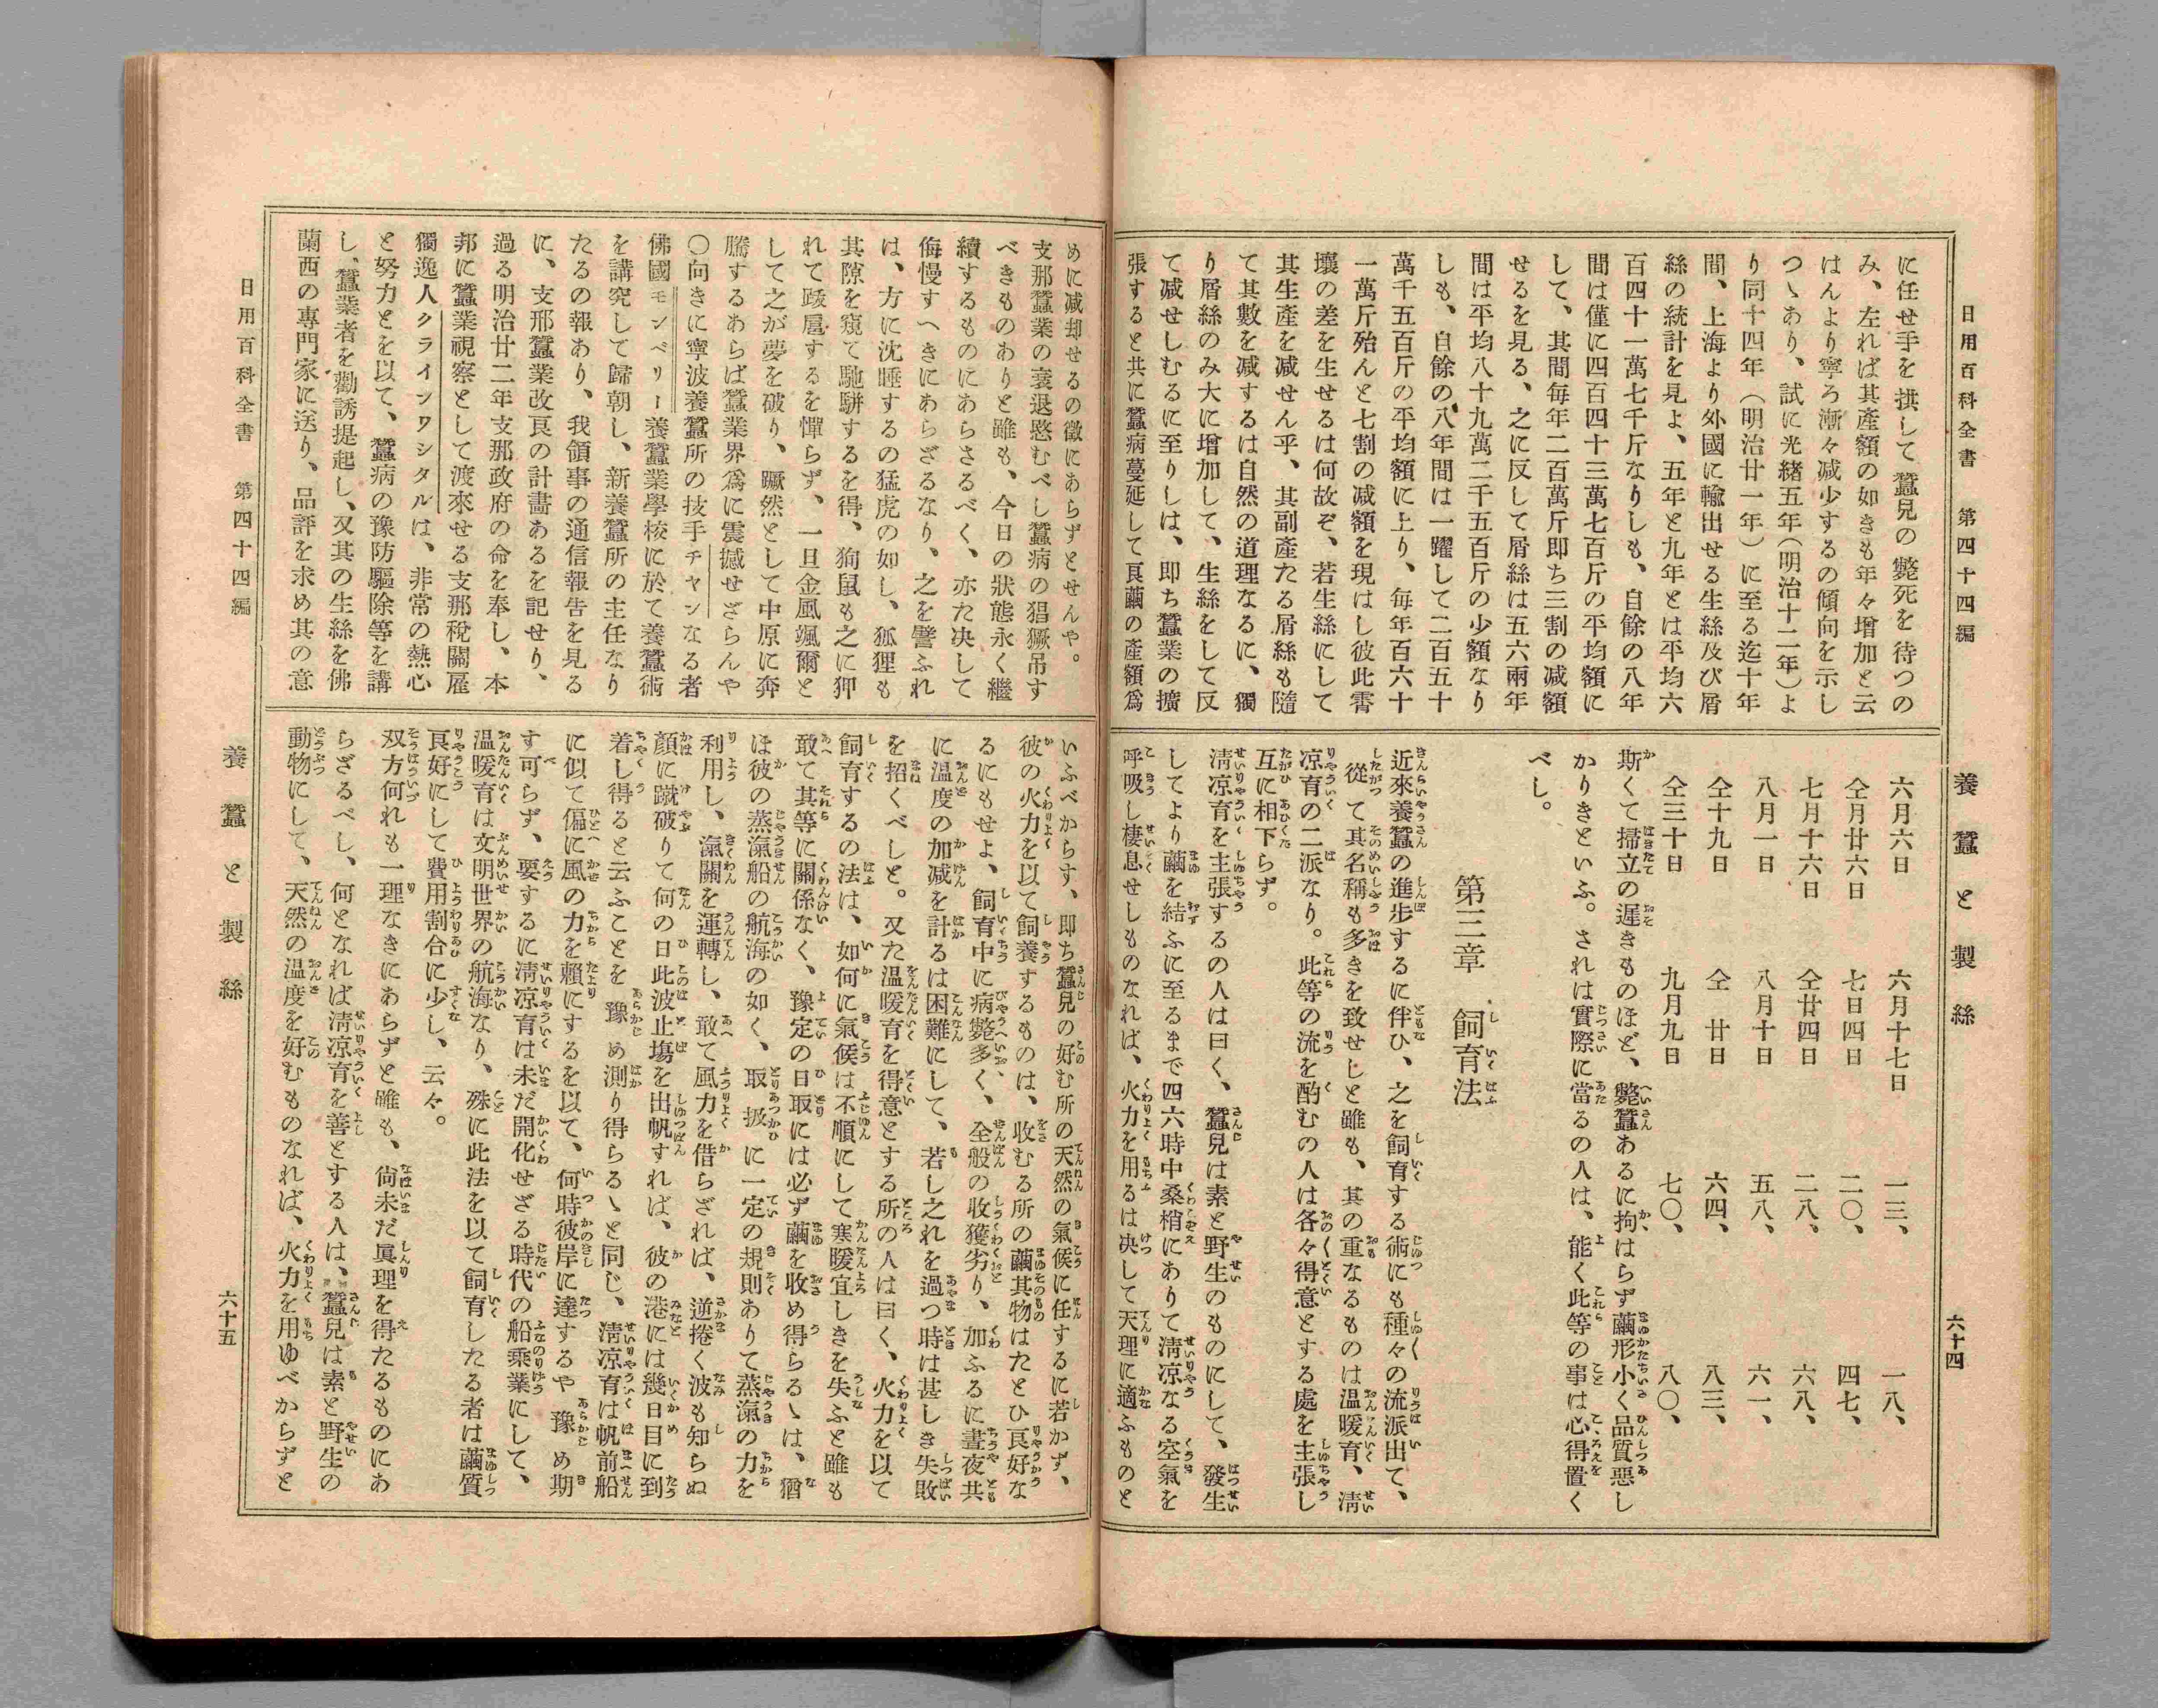 日用百科全書　第四十四編
養蠶と製絲
六十四
に任せ手を拱して蠶兒の斃死を待つの
み、左れば其產額の如きも年々增加と云
はんより寧ろ漸々減少するの傾向を示し
つヽあり、試に光緒五年（明治十二年）よ
り同十四年（明治廿一年）に至る迄十年
間、上海より外國に輸出せる生絲及び屑
絲の統計を見よ、五年と九年とは平均六
百四十一萬七千斤なりしも、自餘の八年
間は僅に四百四十三萬七百斤の平均額に
して、其間每年二百萬斤即ち三割の减額
せるを見る、之に反して屑絲は五六兩年
間は平均八十九萬二千五百斤の少額なり
しも、自餘の八年間は一躍して二百五十
萬千五百斤の平均額に上り、每年百六十
一萬斤殆んと七割の减額を現はし彼此霄
壤の差を生せるは何故ぞ、若生絲にして
其生產を减せん乎、其副產たる屑絲も隨
て其數を减するは自然の道理なるに、獨
り屑絲のみ大に增加して、生絲をして反
て减せしむるに至りしは、即ち蠶業の擴
張すると共に蠶病蔓延して良繭の產額爲
六月六日　六月十七日　一三、　一八、
仝月廿六日　七日四日　二〇、　四七、
七月十六日　仝廿四日　二八、　六八、
八月一日　八月十日　五八、　六一、
仝十九日　仝　廿日　六四、　八三、
仝三十日　九月九日　七〇、　八〇、
斯くて掃立の遲きものほど、斃蠶あるに拘はらず繭形小く品質惡し
かりきといふ。されは實際に當るの人は、能く此等の事は心得置く
べし。
第三章　飼育法
近來養蠶の進步するに伴ひ、之を飼育する術にも種々の流派出て、
從て其名稱も多きを致せしと雖も、其の重なるものは温暖育、淸
凉育の二派なり。此等の流を酌むの人は各々得意とする處を主張し
互に相下らず。
淸凉育を主張するの人は曰く、蠶兒は素と野生のものにして、發生
してより繭を結ふに至るまで四六時中桑梢にありて淸凉なる空氣を
呼吸し棲息せしものなれば、火力を用るは决して天理に適ふものと
めに減却せるの徵にあらずとせんや。
支那蠶業の衰退愍むべし蠶病の猖獗吊す
べきものありと雖も、今日の狀態永く繼
續するものにあらさるべく、亦た决して
侮慢すへきにあらざるなり、之を譬ふれ
は、方に沈睡するの猛虎の如し、狐狸も
其隙を窺て馳騈するを得、狗鼠も之に狎
れて跋扈するを憚らず、一旦金風颯爾と
して之が夢を破り、蹶然として中原に奔
騰するあらば蠶業界爲に震撼せざらんや
〇向きに寧波養蠶所の技手チャンなる者
佛國モンペリー養蠶業學校に於て養蠶術
を講究して歸朝し、新養蠶所の主任なり
たるの報あり、我領事の通信報告を見る
に、支那蠶業改良の計畵あるを記せり、
過る明治廿二年支那政府の命を奉し、本
邦に蠶業視察として渡來せる支那稅關雇
獨逸人クラインワシタルは、非常の熱心
と努力とを以て、蠶病の豫防驅除等を講
し、蠶業者を勸誘提起し、又其の生絲を佛
蘭西の專門家に送り、品評を求め其の意
いふべからす、即ち蠶兒の好む所の天然の氣候に任するに若かず、
彼の火力を以て飼養するものは、收むる所の繭其物はたとひ良好な
るにもせよ、飼育中に病斃多く、全般の收獲劣り、加ふるに晝夜共
に温度の加减を計るは困難にして、若し之れを過つ時は甚しき失敗
を招くべしと。又た温暖育を得意とする所の人は曰く、火力を以て
飼育するの法は、如何に氣候は不順にして寒暖宜しきを失ふと雖も
敢て其等に關係なく、豫定の日取には必ず繭を收め得らるヽは、猶
ほ彼の蒸滊船の航海の如く、取扱に一定の規則ありて蒸滊の力を
利用し、滊關を運轉し、敢て風力を借らざれば、逆捲く波も知らぬ
顏に蹴破りて何の日此波止塲を出帆すれば、彼の港には幾日目に到
着し得ると云ふことを豫め測り得らるヽと同じ、淸凉育は帆前船
に似て偏に風の力を賴にするを以て、何時彼岸に達するや豫め期
す可らず、要するに淸凉育は未だ開化せざる時代の船乘業にして、
温暖育は文明世界の航海なり、殊に此法を以て飼育したる者は繭質
良好にして費用割合に少し、云々。
双方何れも一理なきにあらずと雖も、尙未だ眞理を得たるものにあ
らざるべし、何となれば淸凉育を善とする人は、蠶兒は素と野生の
動物にして、天然の温度を好むものなれば、火力を用ゆべからずと
日用百科全書　第四十四編
養蠶と製絲
六十五